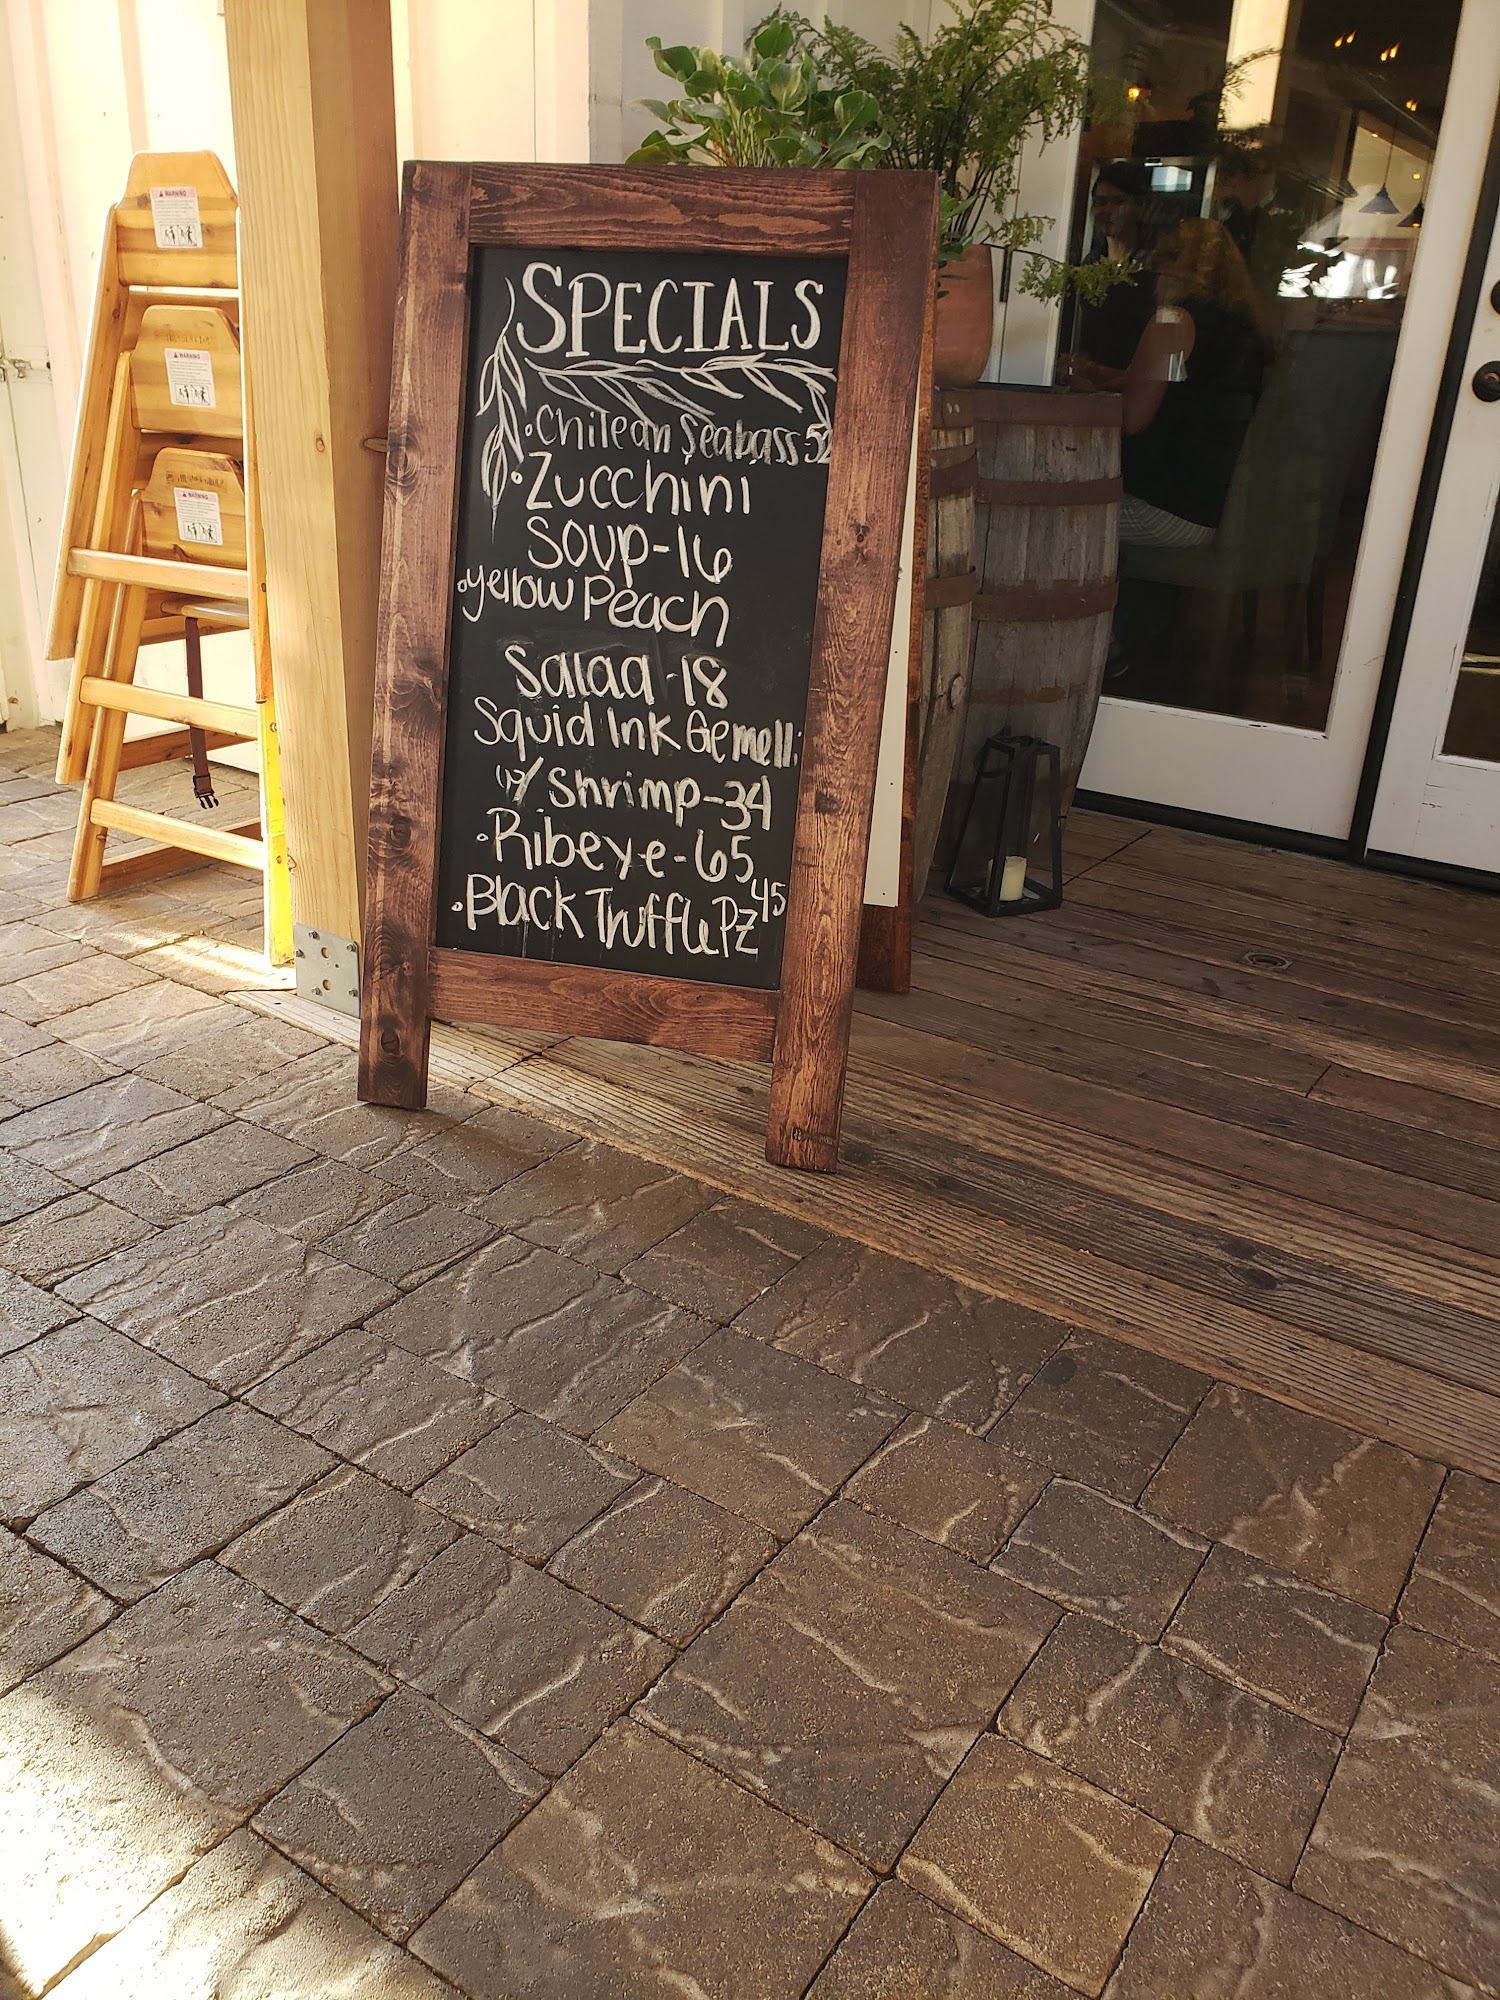 WARNING
WARNING
WARNING
SPECIALS
• Chilean Seabass-52
• Zucchini
Soup-16
• Yellow Peach
Salad-18
Squid Ink Gemelli
w/ Shrimp-34
• Ribeye-65
• Black Truffle Pz 45